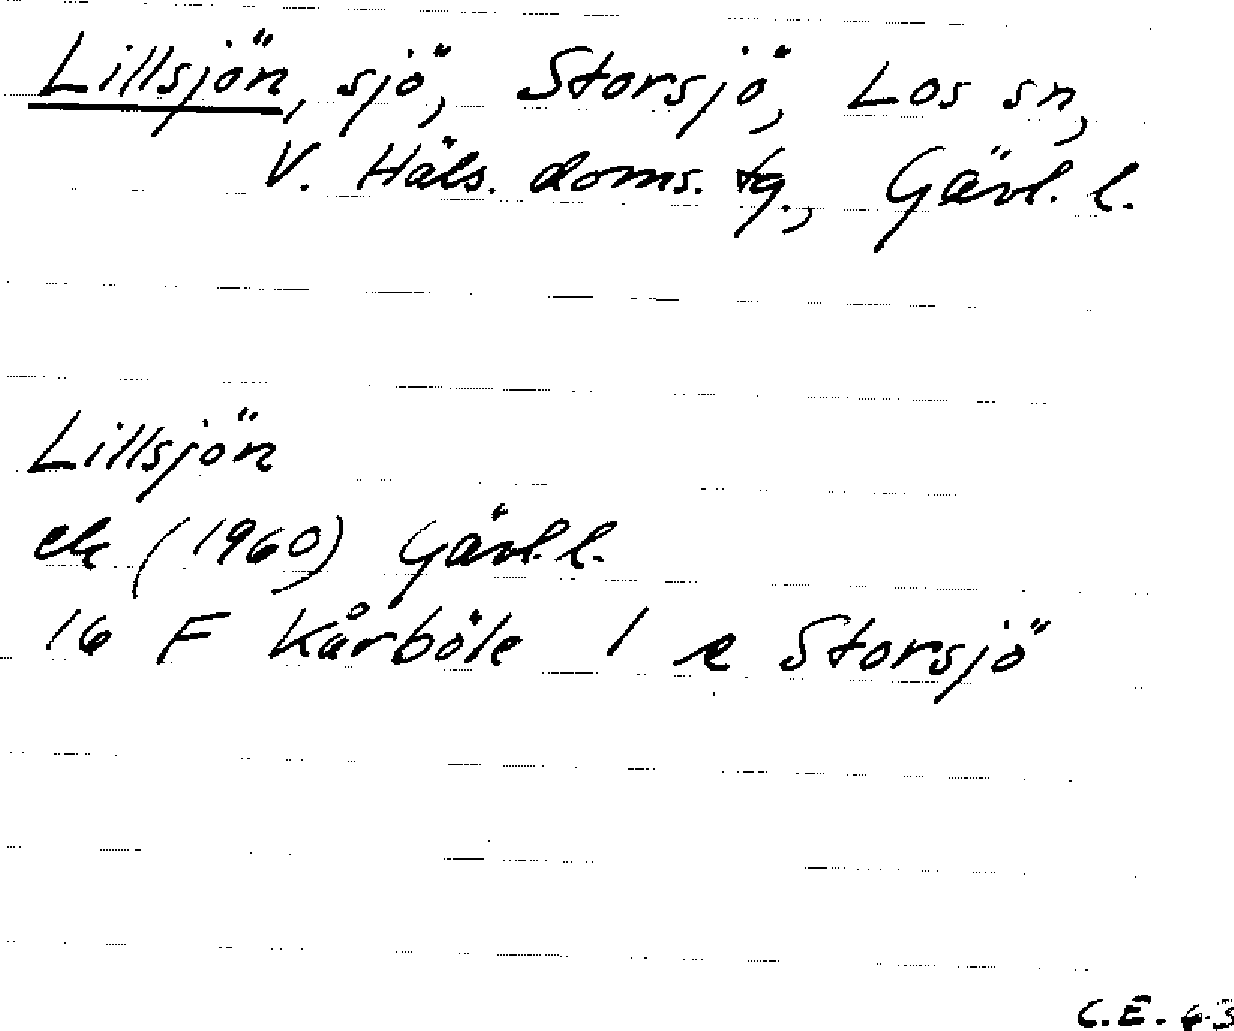 Lillsjön, sjö, Storsjö, Los sn,
V. Häls. doms. tg., Gävl. l.
Lillsjön
ek (1960) Gävl. l.
16 F Kårböle 1 e Storsjö
C.E. 63